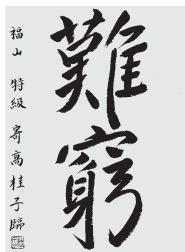 難窮
福山 特級 寄高桂子臨